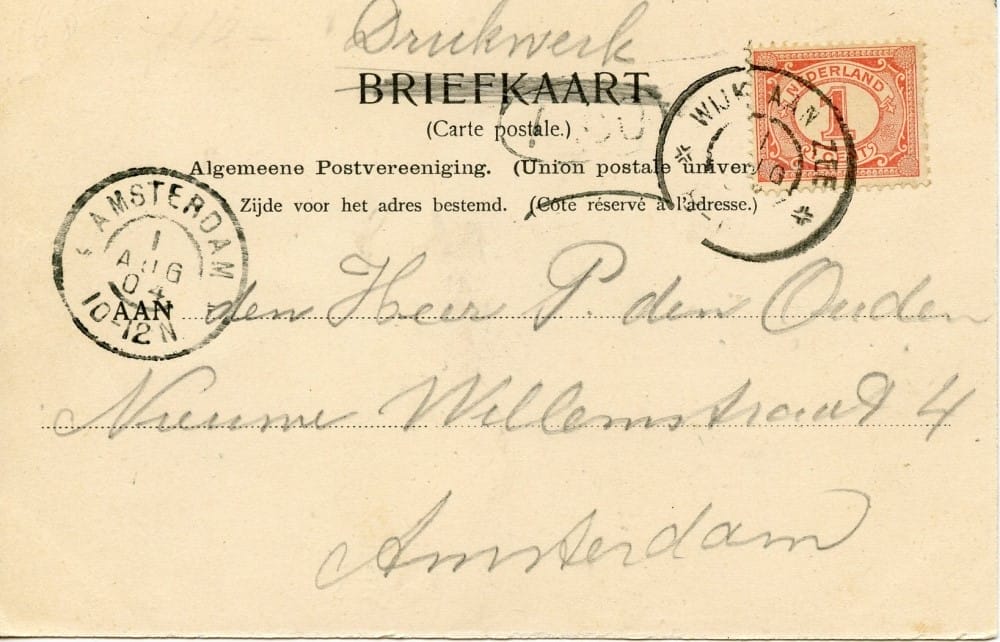 Drukwerk
BRIEFKAART
(Carte postale.)
Algemeene Postvereeniging. (Union postale univer
Zijde voor het adres bestemd. (Côté réservé à l'adresse.)
NEDERLAND
1
WIJK AAN ZEE
1
AMSTERDAM
1
AUG
04
10-12 N
AAN den Heer P. den Ouden
Nieuwe Willemstraat 4
Amsterdam